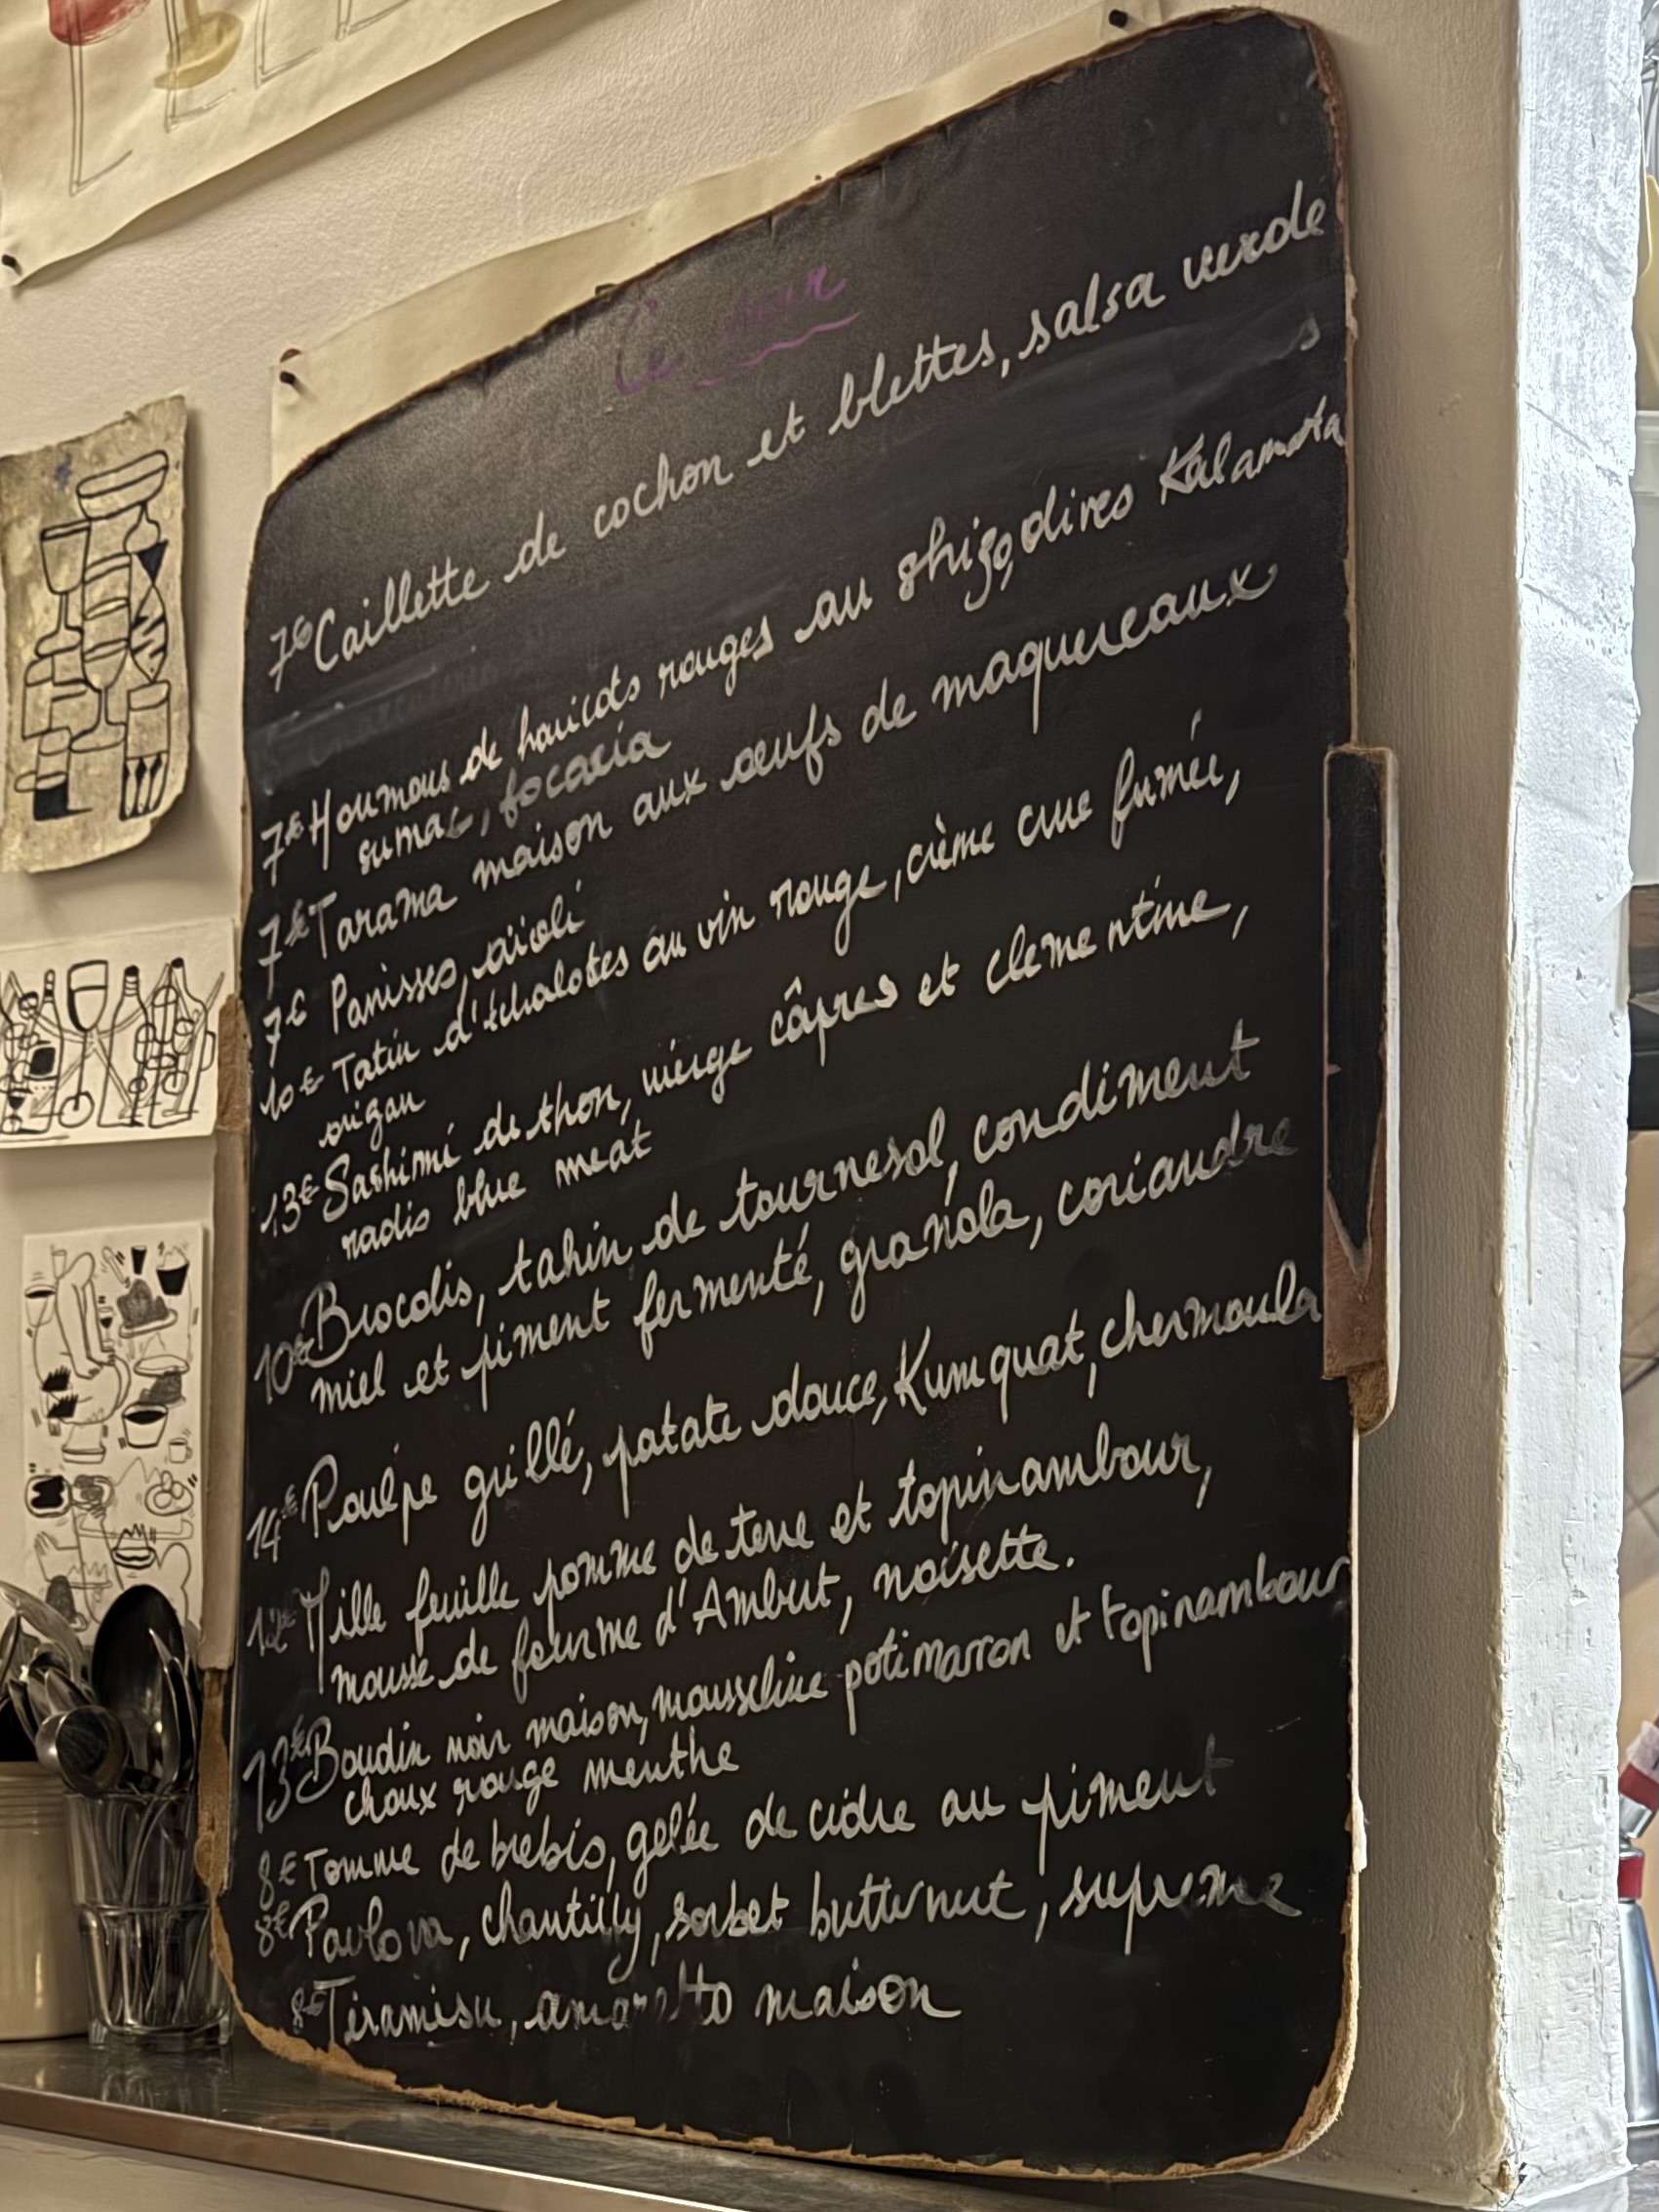 Ce soir
7€ Caillette de cochon et blettes, salsa verde
7€ Houmous de haricots rouges au shizo, olives Kalamata
sumac, focaccia
7€ Tarama maison aux œufs de maquereaux
7€ Panisses, aïoli
10€ Tatin d'échalotes au vin rouge, crème crue fumée,
origan
13€ Sashimi de thon, vierge câpres et clementine,
radis blue meat
10€ Brocolis, tahin de tournesol, condiment
miel et piment fermenté, granola, coriandre
14€ Poulpe grillé, patate douce, Kumquat, chermoula
12€ Mille feuille pomme de terre et topinambour,
mousse de fourme d'Ambert, noisette.
13€ Boudin noir maison, mousseline potimarron et topinambour
choux rouge menthe
8€ Tomme de brebis, gelée de cidre au piment
8€ Pavlova, chantilly, sorbet butternut, supreme
8€ Tiramisu, amaretto maison